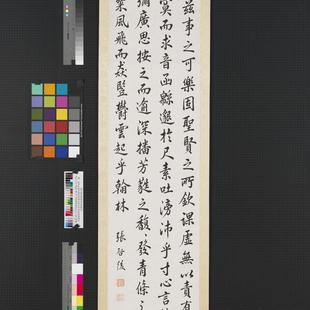 茲事之可樂固聖賢之所欽課虛無以責有
寞而求音函緜邈於尺素吐滂沛乎寸心言
彌廣思按之而逾深播芳蕤之馥〻發青條之
粲風飛而猋豎鬱雲起乎翰林 張啓後